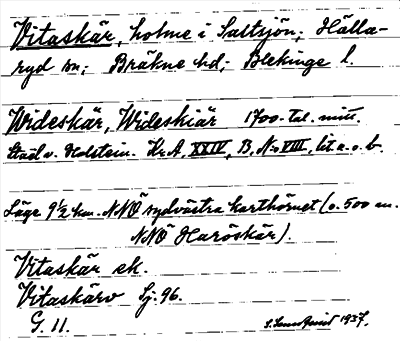 Vitaskär, holme i Saltsjön; Hälla-
ryd sn; Bräkne hd; Blekinge l.
Wideskär, Wideskiär 1700-tal. mitt.
Staël v. Holstein. Kr.A. XXIV, B, No VIII, lit a. o. b.
Läge 9½ km. NNÖ sydvästra karthörnet (o. 500 m.
NNÖ Haröskär).
Vitaskär ek.
Vitaskärv Sj. 96.
G. 11.
1937.